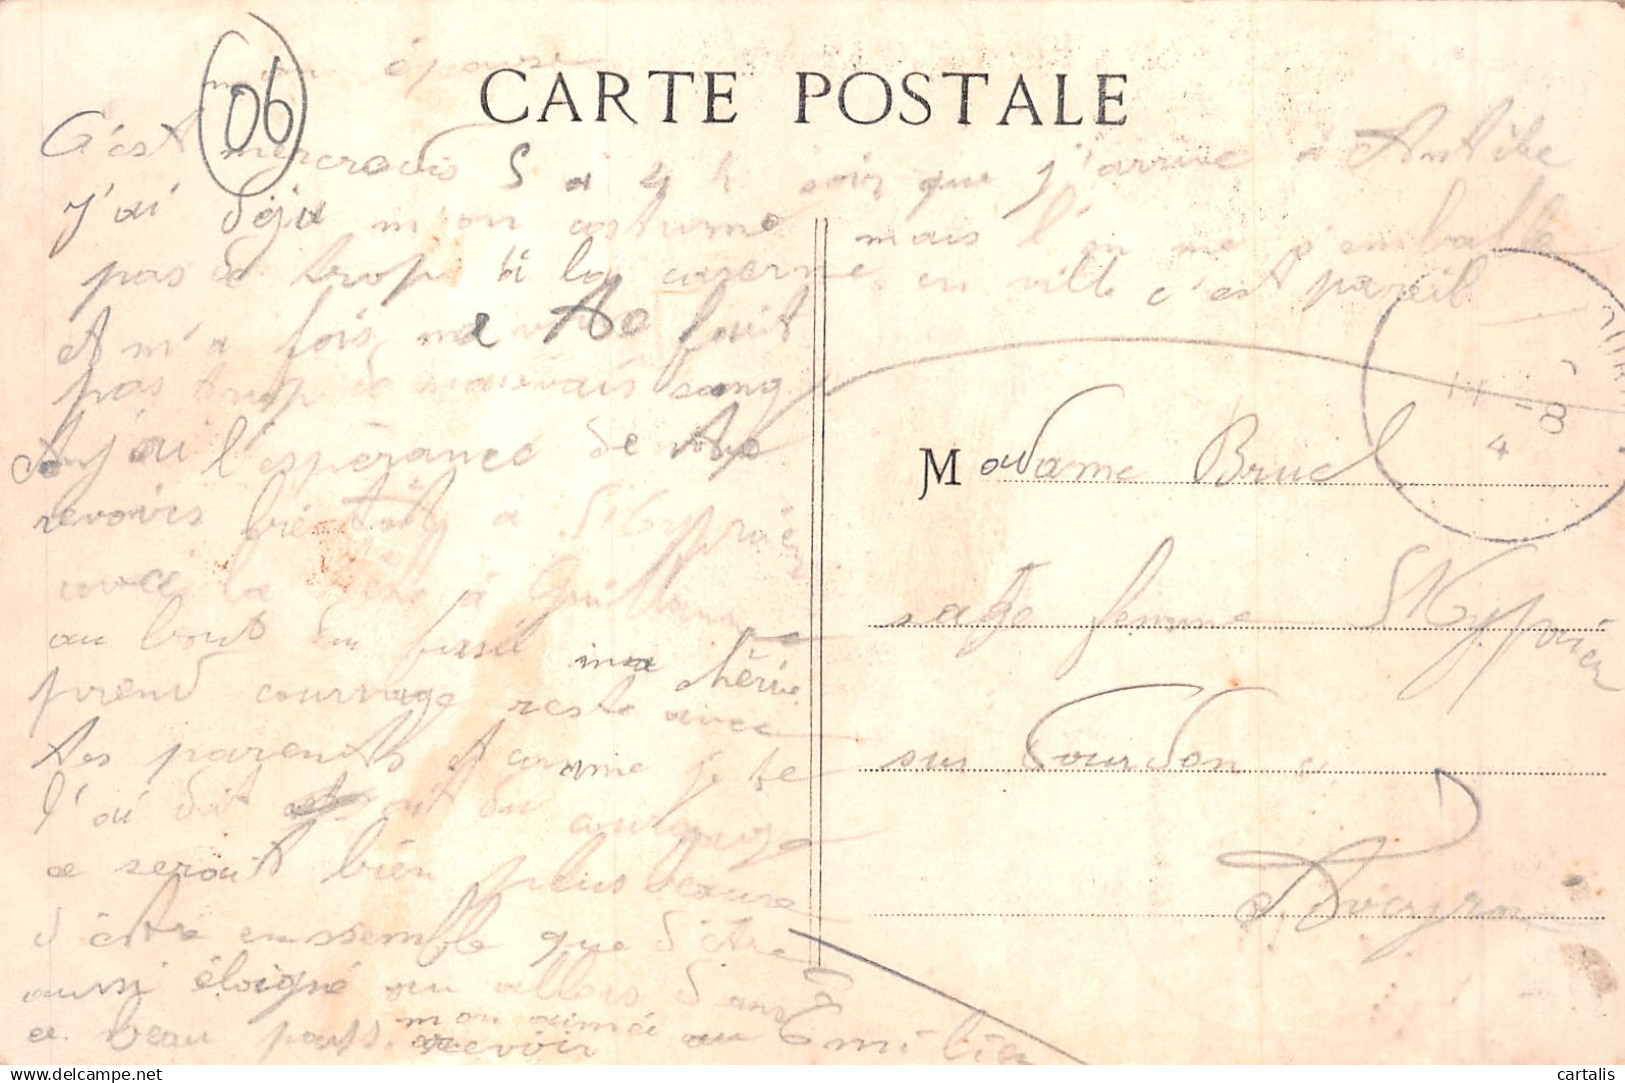 CARTE POSTALE
06
mon épouse
C'est mercredis 5 a 4 h soir que j'arrive à Antibe
j'ai déja m'on costume mais l'on me s'emballe
pas de trop à la caserne en ville c'est pareil
et m'a fois ne fait
pas trop de mauvais sang
j'ai l'espérance de
revoirs bientôt a St Cyprien
avec la tête à Guillaume
au bout du fusil ma chérie
prend courrage reste avec
tes parents et comme je te
l'ai dit du courage
ce serait bien plus
d'être enssemble que d'être
aussi éloigné
ce beau pays mon aimée au
revoir Emilien
Madame Bruel
sage femme St Cyprien
sur Dourdon
Aveyron
14 -8
4
cartalis